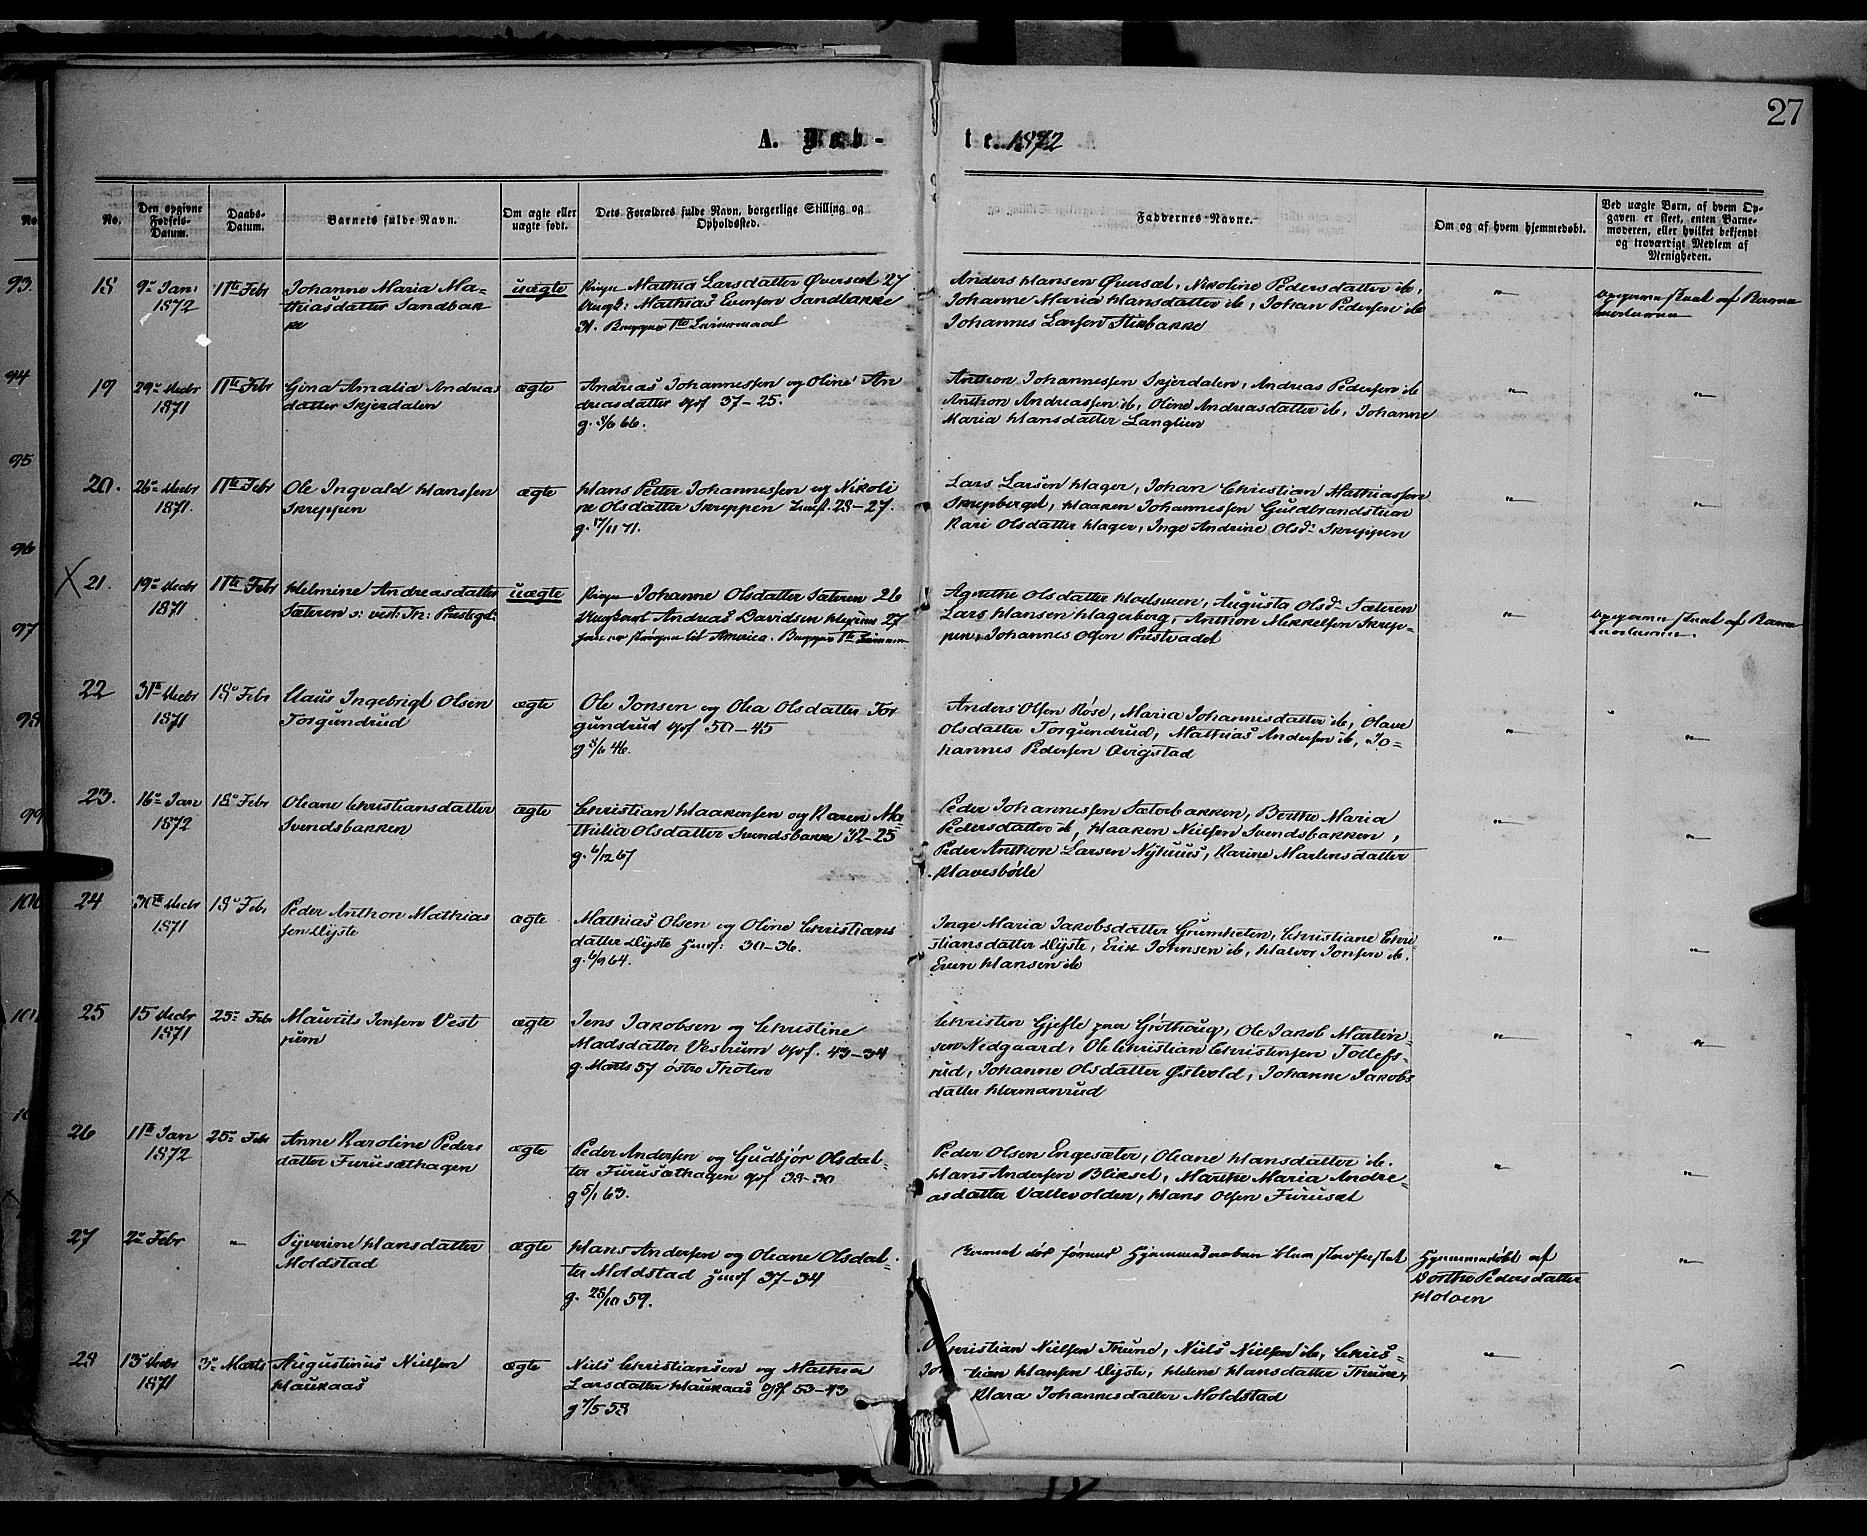 27
A. Døb-
te. 1872
No.
No.
Den opgivne Fødsels-Datum.
Daabs-Datum.
Barnets fulde Navn.
Om ægte eller uægte født.
Dets Forældres fulde Navn, borgerlige Stilling og Opholdssted.
Faddernes Navne.
Om og af hvem hjemmedøbt.
Ved uægte Børn, af hvem Opgaven er skeet, enten Barnemoderen, eller hvilket bekjendt og troværdigt Medlem af Menigheden.
93
94
95
96
97
98
99
100
101
18
9de Jan: 1872
11te Febr
Johanne Maria Ma-
thiasdatter Sandbak
ke
uægte
Pigen Mathea Larsdatter Øverset 27
Ungk: Mathias Evensen Sandbakke
31. Begges 1te Leiermaal
Anders Hansen Øverset, Nikoline Pedersdatter ib,
Johanne Maria Hansdatter ib, Johan Pedersen ib
Johannes Larsen Stenbakke
"
Opgivelsen skeet af Barne
moderen
19
29de Decbr 1871
11te Febr
Gina Amalia Andreas
datter Skjerdalen
ægte
Andreas Johannessen og Oline An
dreasdatter Gpf 37-25.
g. 3/6 66.
Anthon Johannessen Skjerdalen, Andreas Pedersen ib
Anthon Andreassen ib, Oline Andreasdatter ib, Johanne
Maria Hansdatter Langlien
"
"
20.
26de Decbr 1871.
11te Febr
Ole Ingvald Hanssen
Skreppen
ægte
Hans Petter Johannessen og Nikoli
ne Olsdatter Skreppen Huusf. 28-27.
g. 17/11 71.
Lars Larsen Hager, Johan Christian Mathiassen
Skrepberget, Haaken Johannessen Guldbrandstuen
Kari Olsdatter Hager, Inge Andrine Olsd. Skreppen
"
"
X 21.
19de Decbr 1871
11te Febr
Helmine Andreasdatter
Sæteren i vest: Th: Prestegd:
uægte
Pigen Johanne Olsdatter Sæteren 26
Ungkarl Andreas Davidsen 27
som er flyttet til America. Begges 1te Leierm
Agnethe Olsdatter Hodsveen, Augusta Olsd. Sæteren
Lars Hansen Hagerberg, Anthon Mikkelsen Skrep-
pen, Johannes Olsen Prestvadet
"
Opgivelsen skeet af Barne
moderen.
22
31te Decbr 1871
18de Febr
Claus Ingebrigt Olsen
Torgundrud
ægte
Ole Jonsen og Olea Olsdatter Tor
gundrud Gpf 50-45
g 3/6 46.
Anders Olsen Røse, Maria Johannesdatter ib, Olave
Olsdatter Torgundrud, Mathias Andersen ib, Jo-
hannes Pedersen Qvigstad
"
"
23.
16de Jan 1872
18de Febr
Oleane Christiansdatter
Svendsbakken
ægte
Christian Haakensen og Karen Ma
thilia Olsdatter Svendsbakke 32-25
g. 6/12 67
Peder Johannessen Sæterbakken, Berthe Maria
Pedersdatter ib, Haaken Nielsen Svendsbakken,
Peder Anthon Larsen Nyhuus, Karine Martensdatter
Klavesbølle
"
"
24
30te Decbr 1871
18de Febr
Peder Anthon Mathias
sen Dyste
ægte
Mathias Olsen og Oline Christians
datter Dyste Huusf: 30-36.
g. 6/9 64.
Inge Maria Jakobsdatter Grimheten, Christiane Chri-
stiansdatter Dyste, Erik Johnsen ib, Halvor Jonsen ib,
Even Hansen ib
"
"
25
15de Decbr 1871
25de Febr
Maurits Jensen Vest
rum
ægte
Jens Jakobsen og Christine
Madsdatter Vestrum Gpf. 43-34
g. Marts 57 østre Thoten
Christen Gjefle paa Grøthaug, Ole Jakob Martin-
sen Nedgaard, Ole Christian Christensen Tollefs-
rud, Johanne Olsdatter Østvold, Johanne Jakobs
datter Hermanrud
"
"
26
11te Jan 1872
25de Febr
Anne Karoline Peders
datter Furusæthagen
ægte
Peder Andersen og Gudbjør Olsdat-
ter Furusæthagen Gpf 38-30
g 5/1 63.
Peder Olsen Engesæter, Oleane Hansdatter ib.
Hans Andersen Blikset, Marthe Maria Andre-
asdatter Vallevolden, Hans Olsen Furuset
"
"
27
2de Febr
"
Syverine Hansdatter
Moldstad
ægte
Hans Andersen og Oleane Olsdat-
ter Moldstad Huusf 37-34
g. 28/10 59.
Barnet døde førend Hjemmedaaben blev stadfæstet
Hjemmedøbt af
Dorthe Pedersdatter
Holven
"
28
13de Decbr 1871
3de Marts
Augustinus Nielsen
Haukaas
ægte
Niels Christiansen og Mathea
Larsdatter Haukaas Gpf 53-43
g 7/5 58
Christian Nielsen Thune, Niels Nielsen ib, Chris-
tian Hansen Dyste, Helene Hansdatter Thune,
Klara Johannesdatter Moldstad
"
"